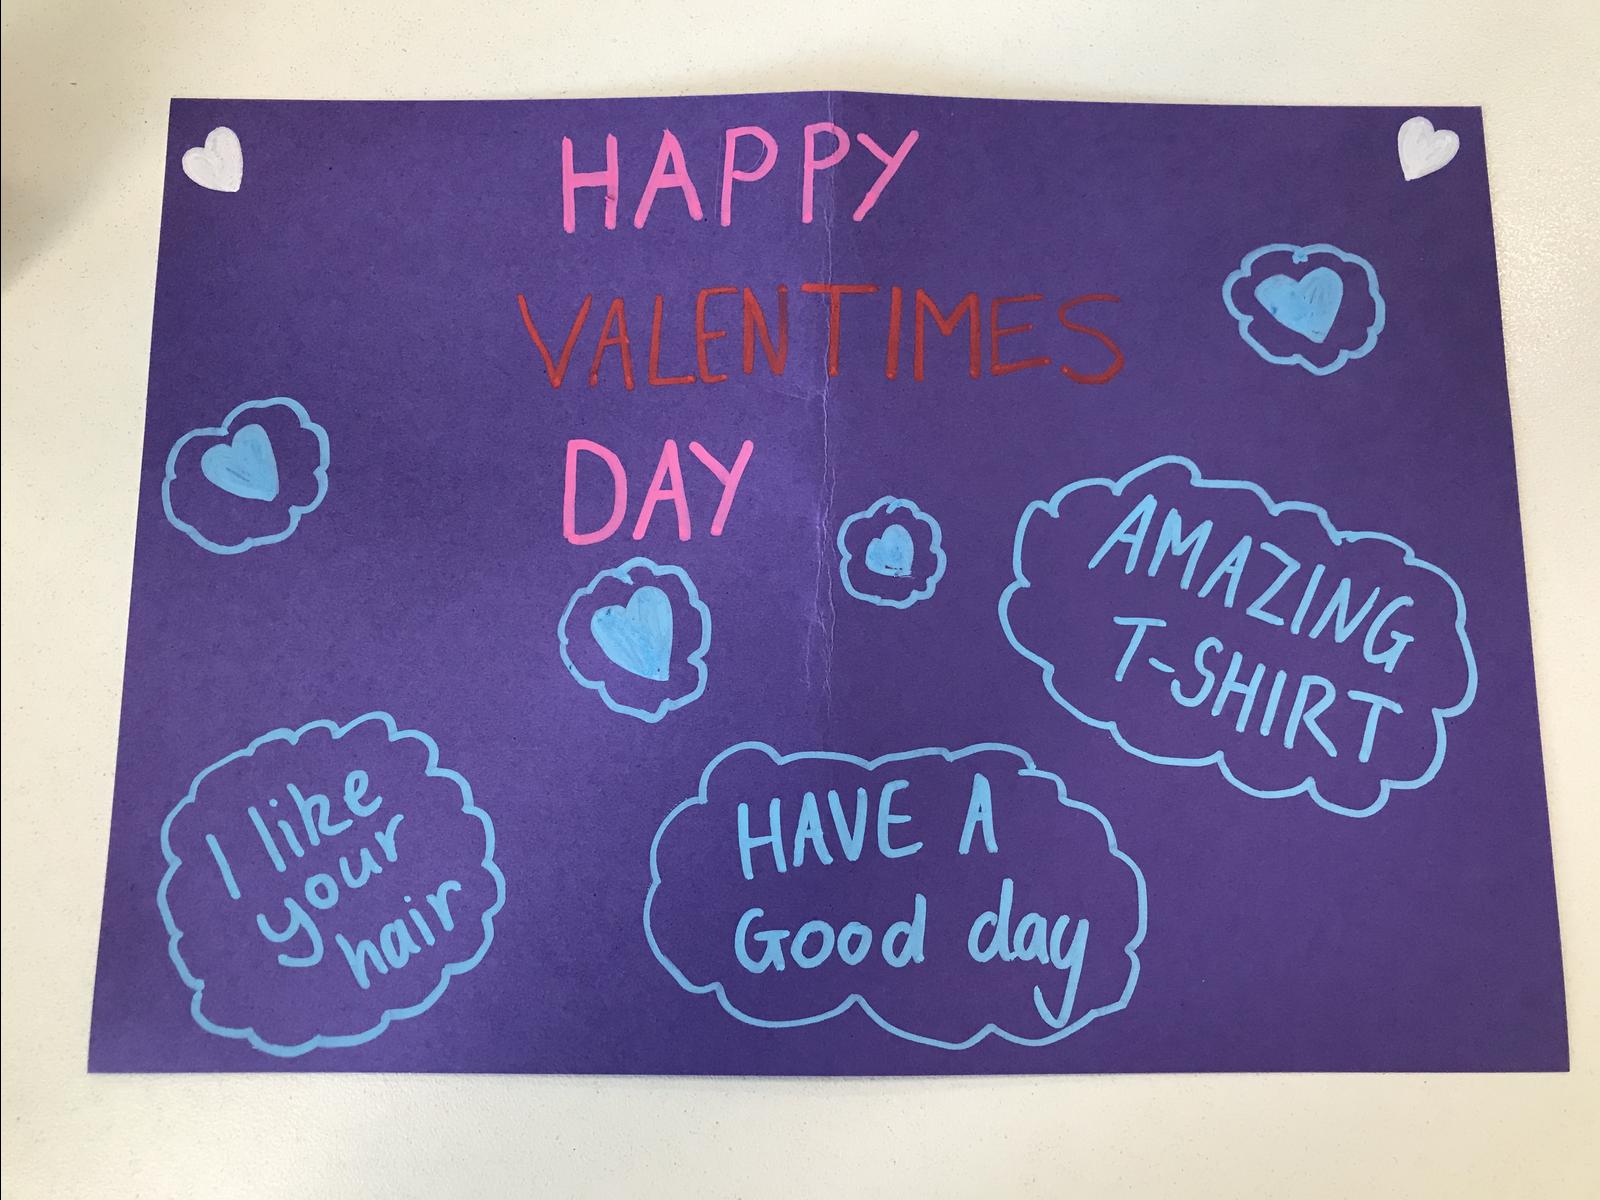 HAPPY
VALENTIMES
DAY
AMAZING
T-SHIRT
I like
your
hair
HAVE A
Good day